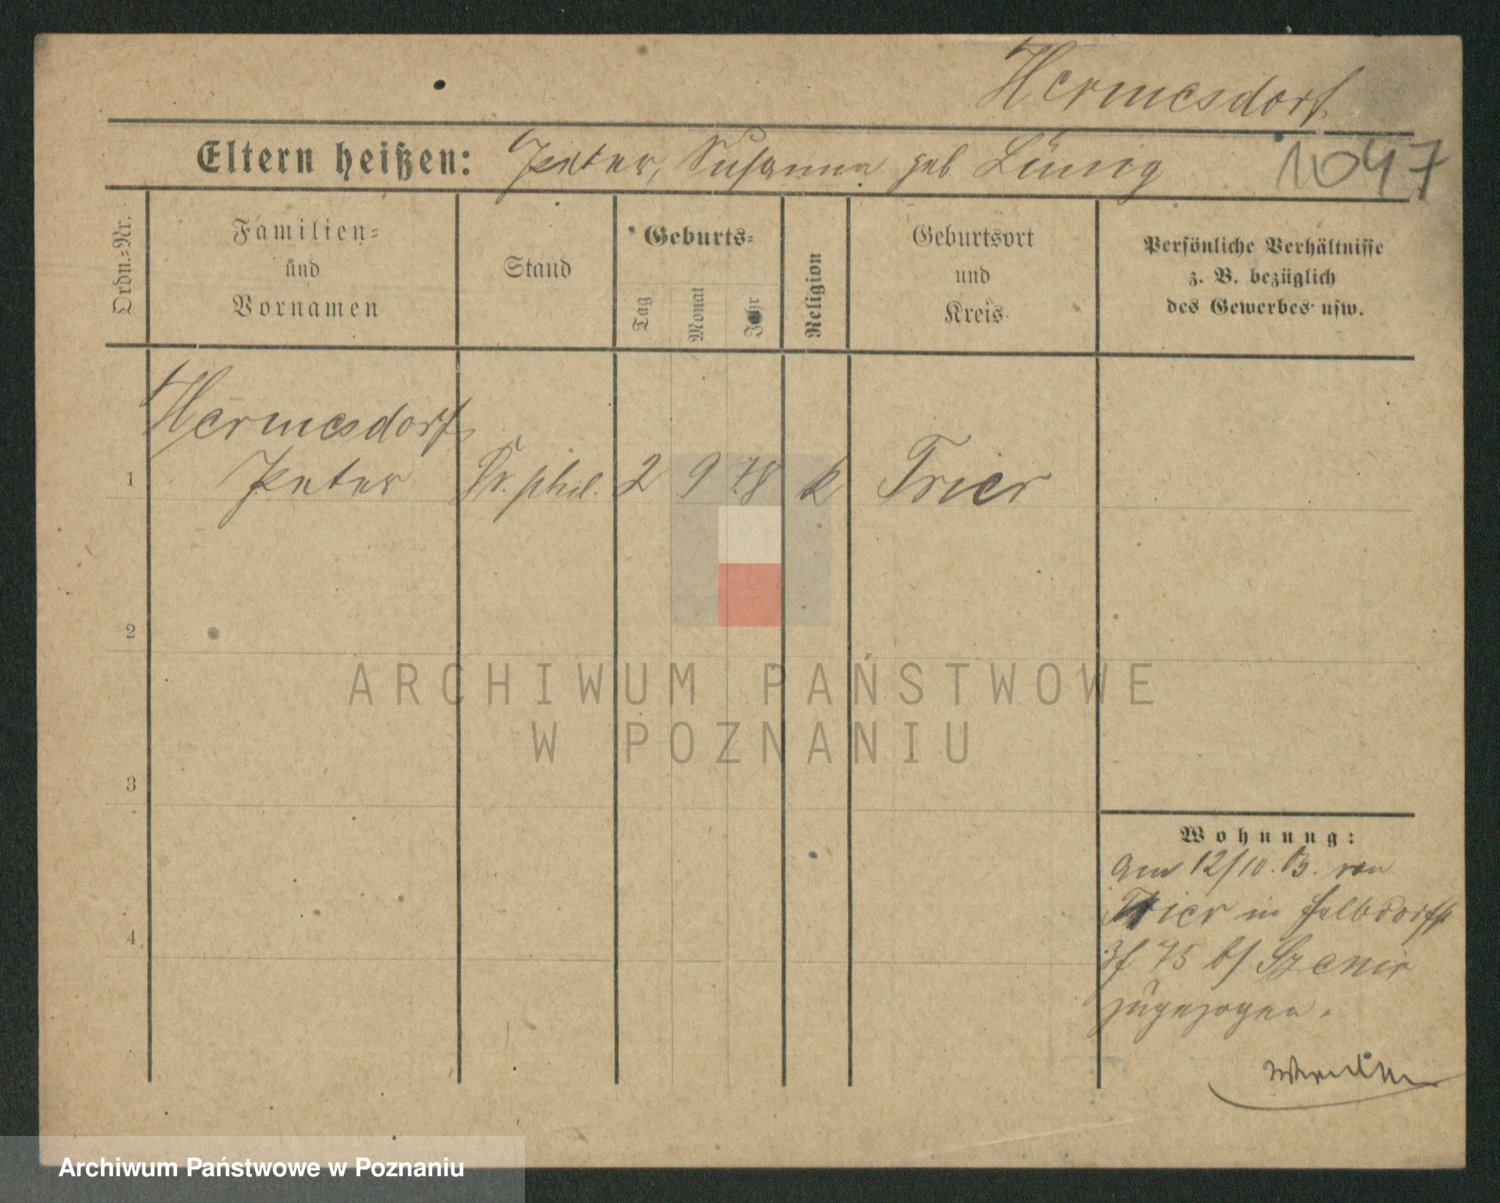 Hermesdorf
1047
Eltern heißen: Peter, Susanna geb Lünig
Ordn.-Nr.
Familien-
und
Vornamen
Stand
Geburts-
Tag
Monat
Jahr
Religion
Geburtsort
und
Kreis
Persönliche Verhältnisse
z. B. bezüglich
des Gewerbes usw.
Hermesdorf
1 Peter Dr. phil. 2 9 78 k Trier
2
3
4
Wohnung:
am 12/10. 03. von
Trier in
75 b/
zugezogen.
ARCHIWUM PAŃSTWOWE
W POZNANIU
Archiwum Państwowe w Poznaniu